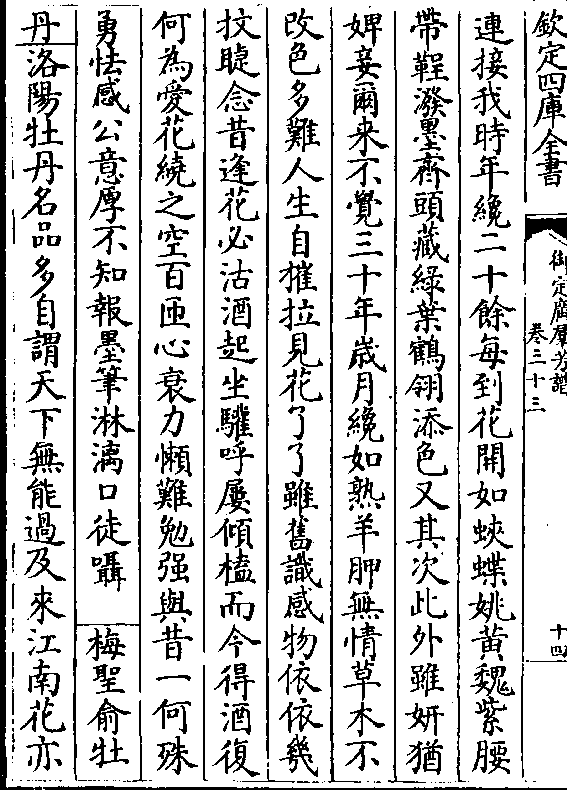 欽定四庫全書
御定廣羣芳譜
卷三十三
十四
連接我時年纔二十餘每到花開如蛺蝶姚黄魏紫腰
帶鞓潑墨齊頭藏緑葉鶴翎添色又其次此外雖妍猶
婢妾爾来不覺三十年歳月纔如熟羊胛無情草木不
改色多難人生自摧拉見花了了雖舊識感物依依幾
抆睫念昔逢花必沽酒起坐驩呼屢傾榼而今得酒復
何為愛花繞之空百匝心衰力懶難勉强與昔一何殊
勇怯感公意厚不知報墨筆淋漓口徒囁 梅聖俞牡
丹洛陽牡丹名品多自謂天下無能過及來江南花亦